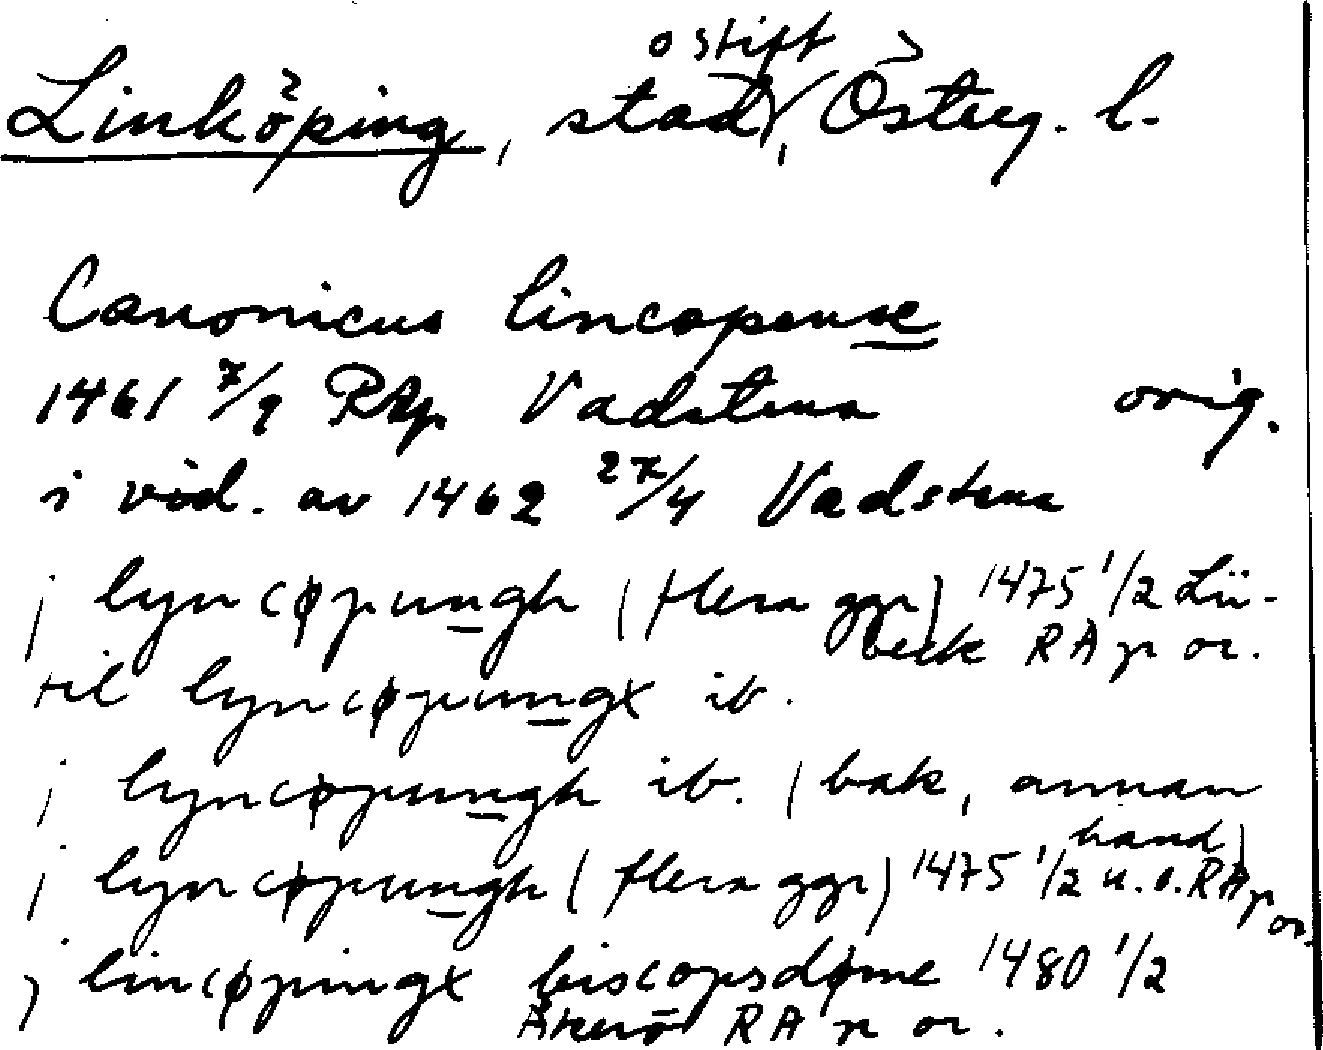 Linköping, stad o stift, Österg. l.
Canonicus lincopense
1461 7/9 RAp Vadstena orig.
i vid. av 1462 27/4 Vadstena
j lyncøpungh (flera ggr) 1475 1/2 Lü-
beck RAp or.
til lyncøpungx ib.
j lyncøpungh ib. (bak, annan
hand)
j lyncøpungh (flera ggr) 1475 1/2 u.o. RAp or.
j lincøpingx biscopsdøme 1480 1/2
Åkerö RAp or.